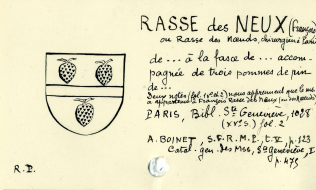 RASSE des NEUX (François)
ou Rasse des Nœuds, chirurgien à Paris
de... à la fasce de... accom-
pagnée de trois pommes de pin
de...
Deux notes (fol. 1 et 2) nous apprennent que le ms
a appartenu à François Rasse des Neux
PARIS, Bibl. Ste Geneviève, 1028
(XVe s.) fol. 2
A. BOINET, S.F.R.M.P., t. V, p. 123
Catal. gén. des Mss, Ste Geneviève, I
p. 475
R. D.